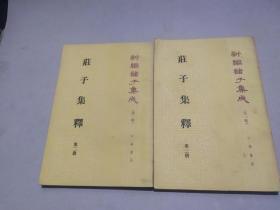 新編諸子集成
(第一輯)
莊子集釋
第二册
中華書局
新編諸子集成
(第一輯)
莊子集釋
第二册
中華書局